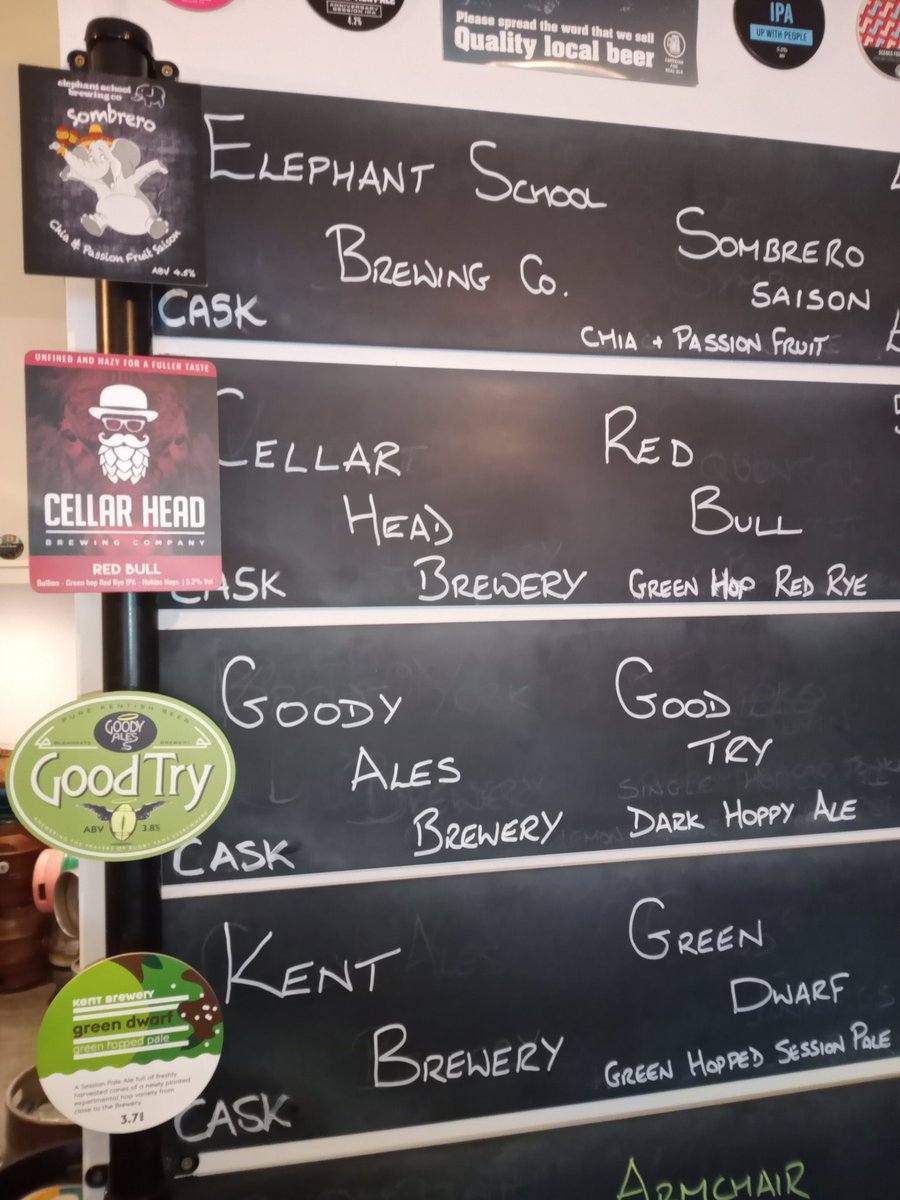 ANNIVERSARY
SESSION IPA
4.2%
Please spread the word that we sell
Quality local beer
CAMPAIGN
FOR
REAL ALE
IPA
UP WITH PEOPLE
elephant school
brewing co
Sombrero
Chia & Passion Fruit Saison
ABV 4.5%
ELEPHANT SCHOOL
BREWING CO.
CASK
SOMBRERO
SAISON
CHIA + PASSION FRUIT
UNFINED AND HAZY FOR A FULLER TASTE
CELLAR HEAD
BREWING COMPANY
RED BULL
Bullion - Green hop Red Rye IPA - Hukins Hops | 5.2% Vol
CELLAR
HEAD
BREWERY
CASK
RED
BULL
GREEN HOP RED RYE
PURE KENTISH BEER
GOODY
ALES
Good Try
ABV 3.8%
ANSWERING THE PRAYERS OF RUGBY FANS EVERYWHERE
GOODY
ALES
BREWERY
CASK
GOOD
TRY
DARK HOPPY ALE
KENT BREWERY
green dwarf
green hopped pale
A Session Pale Ale full of freshly
harvested cones of a newly planted
experimental hop variety from
close to the Brewery
3.7%
KENT
BREWERY
CASK
GREEN
DWARF
GREEN HOPPED SESSION PALE
ARMCHAIR